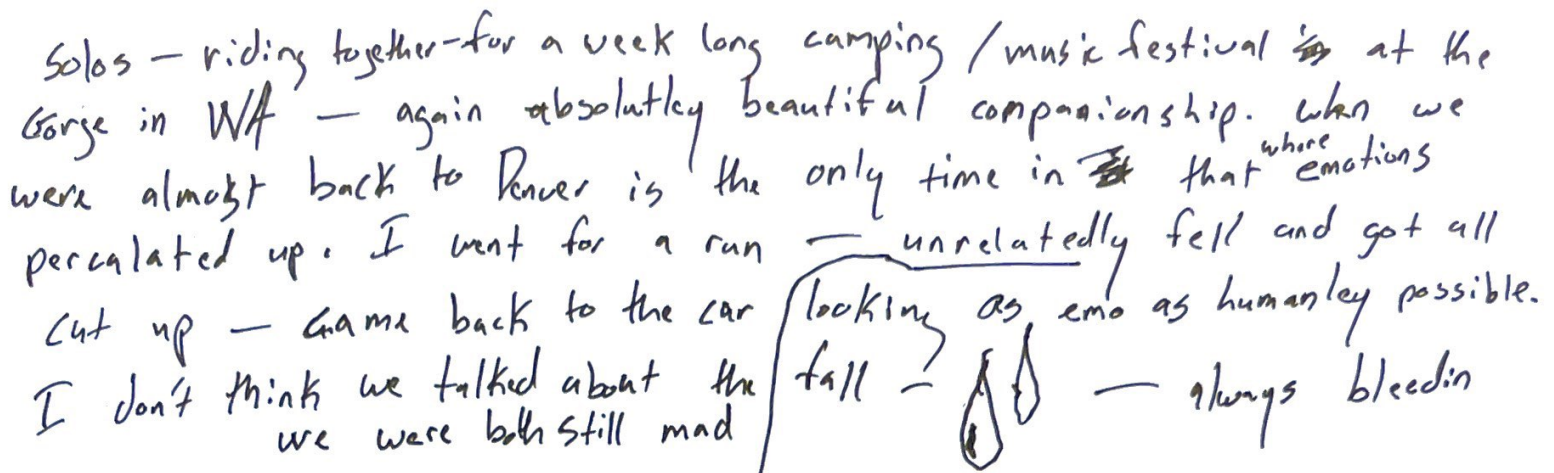 Solos – riding together – for a week long camping / music festival at the
Gorge in WA – again absolutley beautiful companionship. When we
were almost back to Denver is the only time in that where emotions
percalated up. I went for a run – unrelatedly fell and got all
cut up – came back to the car looking as emo as humanley possible.
I don't think we talked about the fall – – always bleedin
we were both still mad